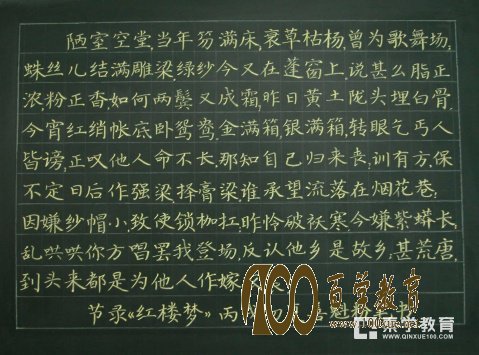 陋室空堂,当年笏满床,衰草枯杨,曾为歌舞场,
蛛丝儿结满雕梁绿纱今又在蓬窗上,说甚么脂正
浓粉正香如何两鬓又成霜,昨日黄土陇头埋白骨,
今宵红绡帐底卧鸳鸯,金满箱,银满箱,转眼乞丐人
皆谤,正叹他人命不长,那知自己归来丧:训有方,保
不定日后作强梁择膏梁谁承望流落在烟花巷:
因嫌纱帽小致使锁枷扛,昨怜破袄寒今嫌紫蟒长,
乱哄哄你方唱罢我登场,反认他乡是故乡;甚荒唐,
到头来都是为他人作嫁衣
节录《红楼梦》丙
百学教育
秦学教育
WWW.QINXUE100.COM